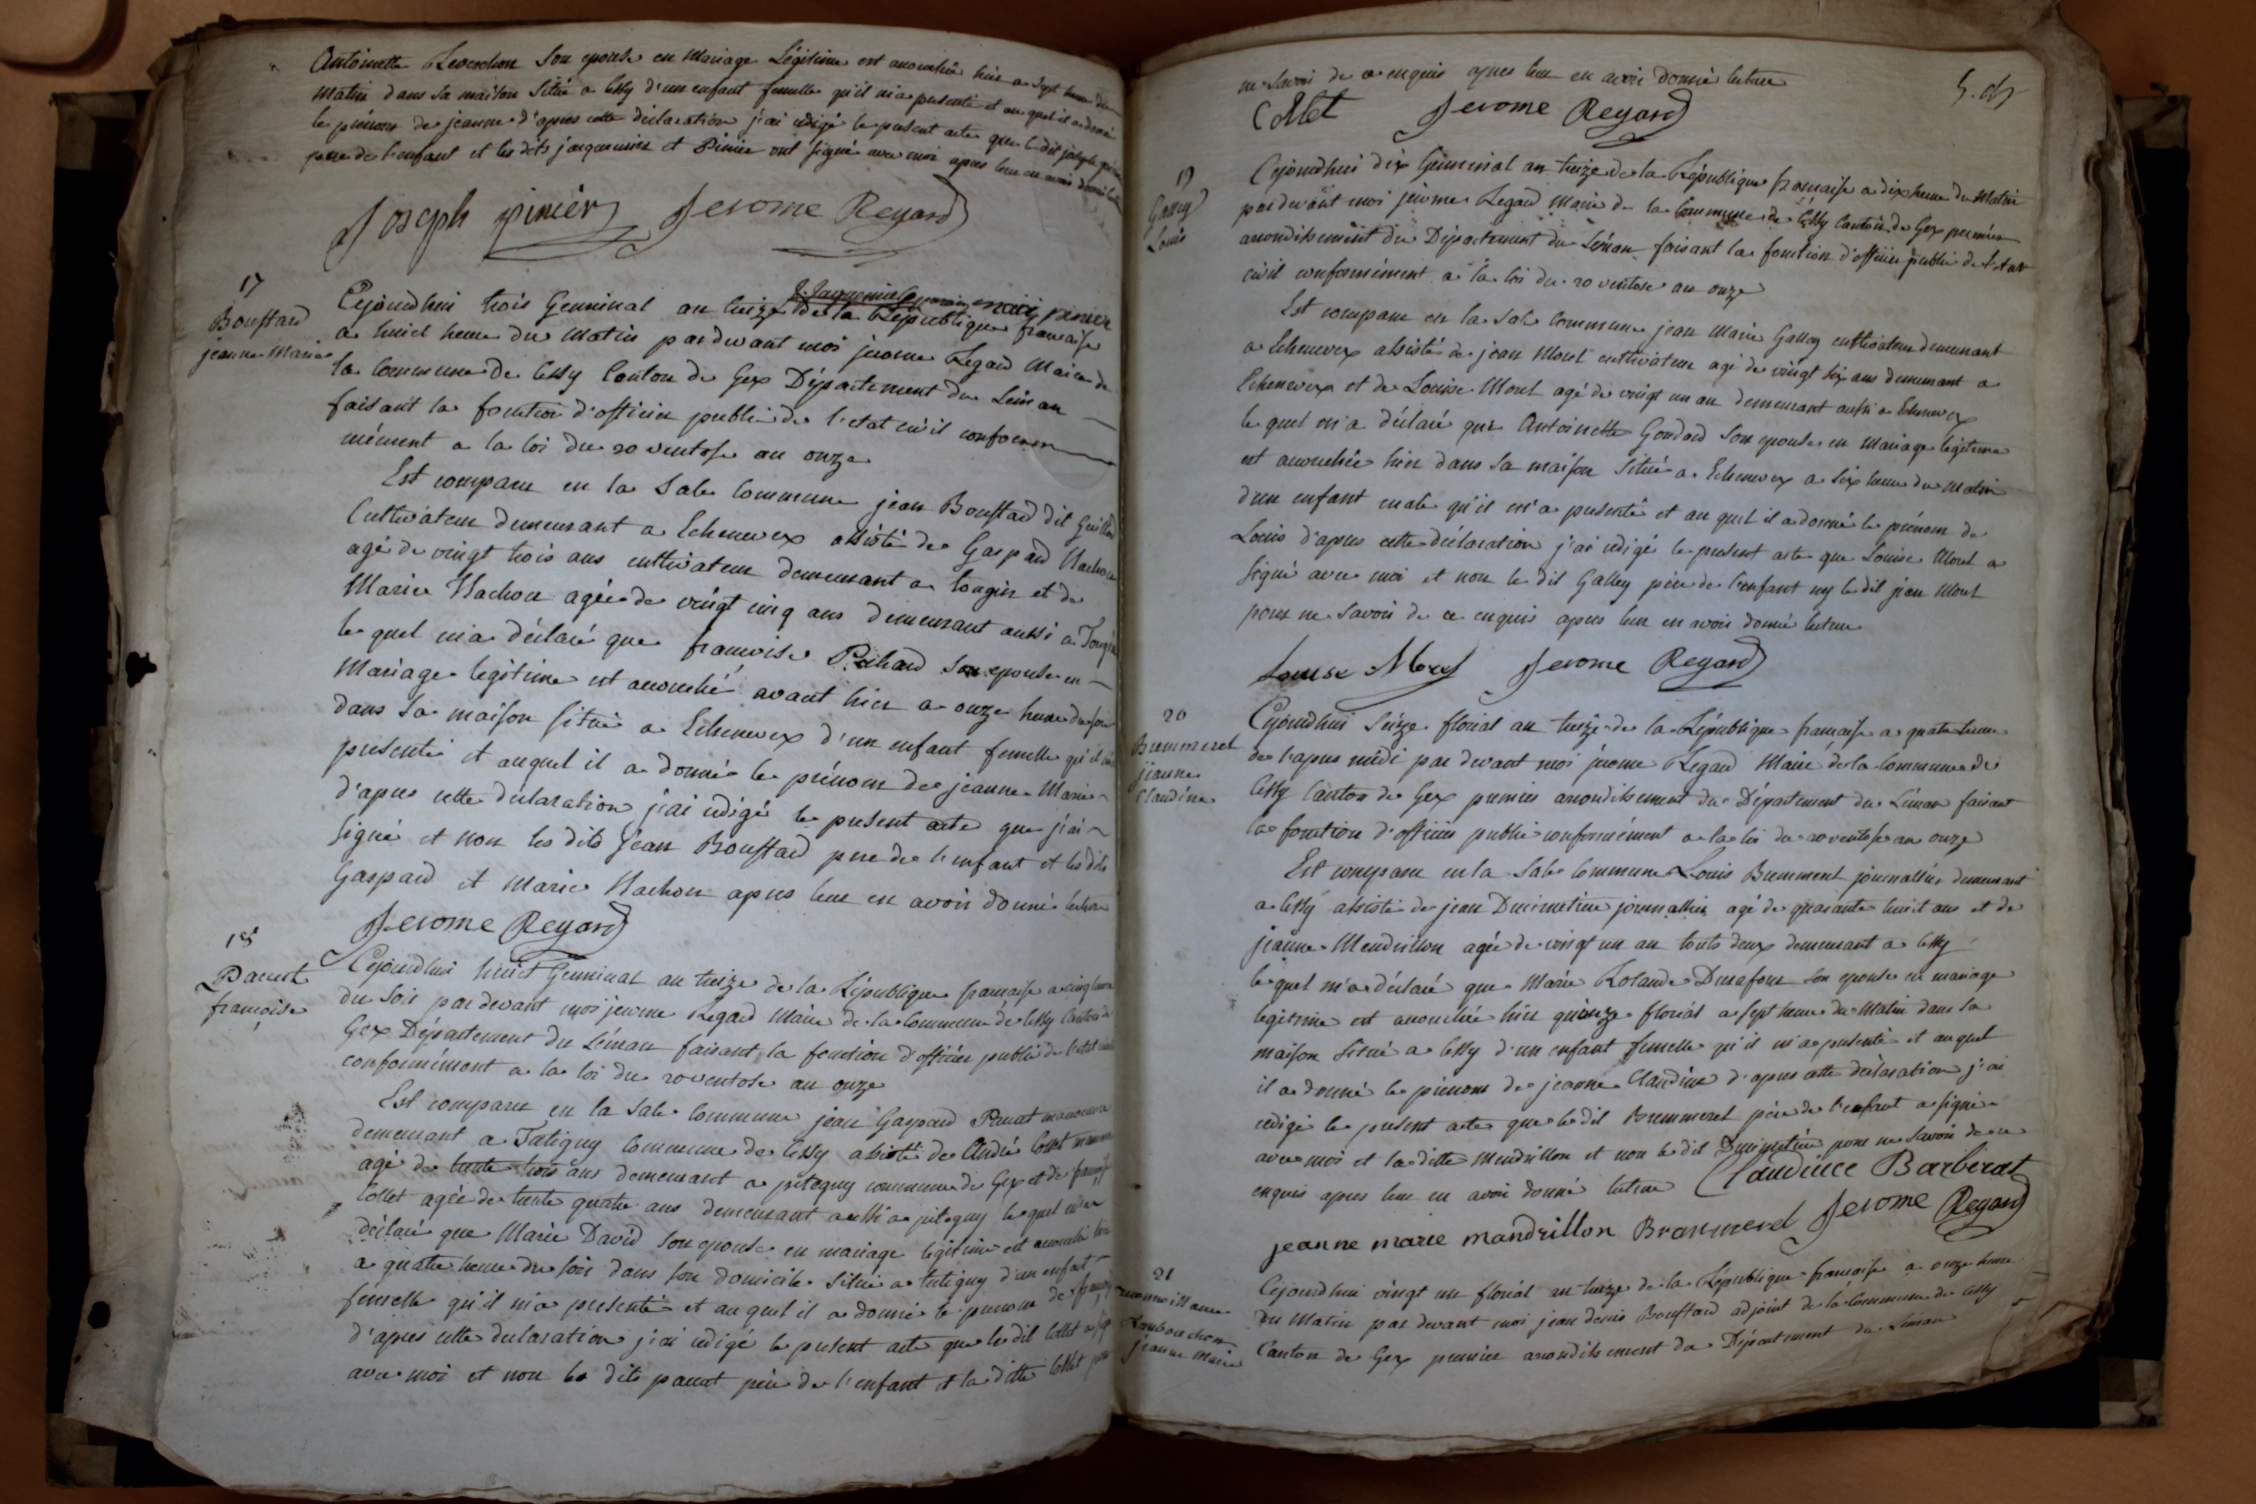 Antoinette son epouse en Mariage Légitime est anouchée hier a Sept heure du
Matin dans Sa maison Situé a Cessy d'un enfant femelle qu'il m'a presenté et au quel il a donné
le prénom de jeanne d'apres cette déclaration j'ai rédigé le present acte que le dit joseph
pere de l'enfant et les dits et Pinier ont signé avec moi apres leur en avoir donné lecture
Joseph pinier Jerome Regard
17
Bouffard
jeanne Marie
marie pinier
Cejourdhui trois Germinal an treize de la République française
a huict heure du Matin pardevant moi jerome Regard Maire de
la Commune de Cessy Canton de Gex Département du Léman
faisant la fonction d'officier public de l'etat civil conformé
mément a la loi du 20 ventose an onze
Est comparu en la Sale Commune jean Bouffard dit
Cultivateur demeurant a Echenevex assisté de Gaspard Nachon
agé de vingt trois ans cultivateur demeurant a Tougin et de
Marie Nachon agée de vingt cinq ans demeurant aussi a Tougin
le quel m'a déclaré que francoise son epouse en
Mariage legitime est anouché avant hier a onze heure du soir
dans Sa maison située a Echenevex d'un enfant femelle qu'il m'a
presenté et auquel il a donné le prénom de jeanne Marie
d'apres cette déclaration j'ai rédigé le present acte que j'ai
signé et non les dits jean Bouffard pere de l'enfant et les dits
Gaspard et Marie Nachon apres leur en avoir donné lecture
Jerome Regard
18
Pauut
françoise
Cejourdhui huict Germinal an treize de la République française a cinq heure
du Soir pardevant moi jerome Regard Maire de la Commune de Cessy Canton de
Gex Département du Léman faisant la fonction d'officier public de l'etat civil
conformément a la loi du 20 ventose an onze
Est comparu en la Sale Commune jean Gaspard
demeurant a Tutigny Commune de Cessy assisté de André Collet
agé de trente trois ans demeurant a pitegny commune de Gex et de
Collet agée de trente quatre ans demeurant aussi a pitegny le quel m'a
déclaré que Marie David son epouse en mariage legitime est anouchée hier
a quatre heure du soir dans son domicile situé a tutigny d'un enfant
femelle qu'il m'a presenté et au quel il a donné le prenom de
d'apres cette declaration j'ai rédigé le present acte que le dit Collet a signé
avec moi et non les dits pere de l'enfant et la ditte Collet pour
ne Savoir de ce enquis apres leur en avoir donné lecture
Collet Jerome Regard
19
Galley
Louis
Cejourdhui dix Germinal an treize de la République française a dix heure du Matin
pardevant moi jérome Regard Maire de la Commune de Cessy Canton de Gex premier
arrondissement du Département du Léman faisant la fonction d'officier public de l'etat
civil conformément a la loi du 20 ventose an onze
Est comparu en la Sale Commune jean Marie Galley cultivateur demeurant
a Echenevex assisté de jean Morel cultivateur agé de vingt six ans demeurant a
Echenevex et de Louise Morel agé de vingt un an demeurant aussi a Echenevex
le quel m'a déclaré que Antoinette Goudard son epouse en mariage legitime
est anouchée hier dans sa maison située a Echenevex a six heure du Matin
d'un enfant male qu'il m'a presenté et au quel il a donné le prénom de
Louis d'apres cette déclaration j'ai rédigé le present acte que Louise Morel a
signé avec moi et non le dit Galley père de l'enfant ny le dit jean Morel
pour ne savoir de ce enquis apres leur en avoir donné lecture
Louise Morel Jerome Regard
20
Brummerel
jeanne
Claudine
Cejourdhui Seize floréal an treize de la République française a quatre heure
de l'apres midi par devant moi jérome Regard Maire de la Commune de
Cessy Canton de Gex premier arrondissement du Département du Léman faisant
la fonction d'officier public conformément a la loi du 20 ventose an onze
Est comparu en la Sale Commune Louis Brummerel journallier demeurant
a Cessy assisté de jean Ducimetiere journallier agé de quarante huict ans et de
jeanne Mendrillon agée de vingt un an touts deux demeurant a Cessy
le quel m'a déclaré que Marie Rolande Dunafour son epouse en mariage
legitime est anouchée hier quinze floréal a sept heure du Matin dans sa
maison situé a Cessy d'un enfant femelle qu'il m'a presenté et au quel
il a donné le prénom de jeanne Claudine d'apres cette déclaration j'ai
rédigé le present acte que le dit Brummerel père de l'enfant a signé
avec moi et la ditte Mendrillon et non le dit Ducimetière pour ne savoir de ce
enquis apres leur en avoir donné lecture Claudince Barberat
jeanne marie mandrillon Brommerel Jerome Regard
21
jeanne Marie
Cejourdhui vingt un floréal an treize de la République française a onze heure
du Matin par devant moi jean denis Bouffard adjoint de la Commune de Cessy
Canton de Gex premier arrondissement du Département du Léman